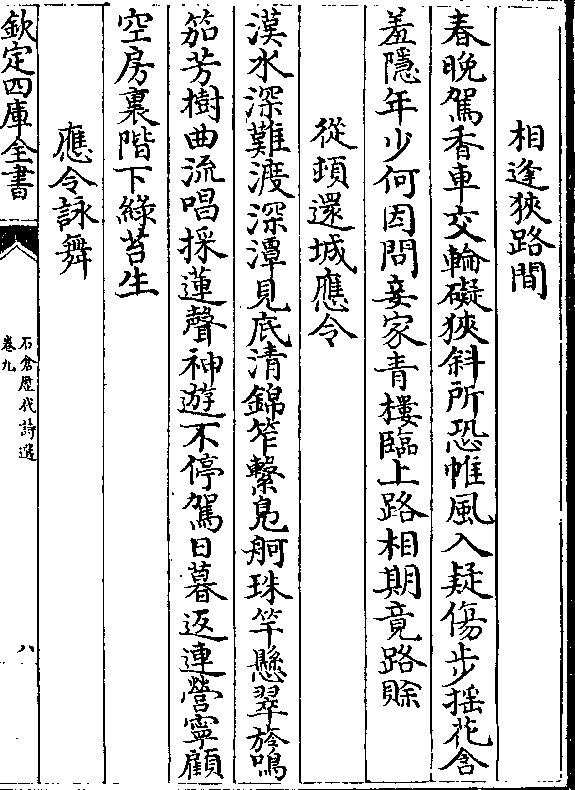 相逢狹路間
春晚駕香車交輪礙狹斜所恐帷風入疑傷步搖花含
羞隱年少何因問妾家青樓臨上路相期竟路賒
從頓還城應令
漢水深難渡深潭見底清錦笮繫鳧舸珠竿懸翠旍鳴
笳芳樹曲流唱採蓮聲神遊不停駕日暮返連營寧顧
空房裏階下綠苔生
應令詠舞
欽定四庫全書
石倉歷代詩選
卷九
八